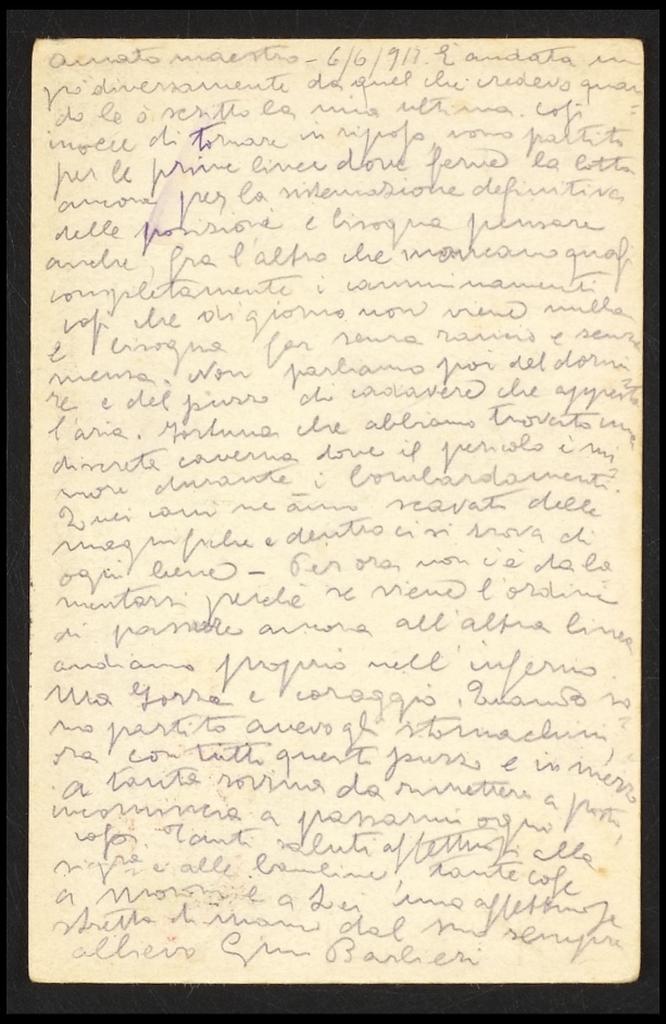 amato maestro - 6/6/917. È andata un
po' diversamente da quel che credevo quan=
do le ò scritto la mia ultima. Così
invece di tornare in riposo, sono partito
per le prime linee dove ferve la lotta
ancora per la sistemazione definitiva
delle posizioni e bisogna pensare
anche, fra l'altro che mancano quasi
completamente i camminamenti
così che di giorno non viene nulla
e bisogna far senza rancio e senza
mensa. Non parliamo poi del dormi=
re e del puzzo di cadavere che appesta
l'aria. Fortuna che abbiamo trovato una
discreta caverna dove il pericolo è mi=
nore durante i bombardamenti.
Quei cani ne ànno scavati delle
magnifiche e dentro ci si trova di
ogni bene - Per ora non c'è da la
mentarsi perchè se viene l'ordine
di passare ancora all'altra linea
andiamo proprio nell'inferno.
Ma forza e coraggio. Quando so=
no partito avevo gli
ora con tutto questo puzzo e in mezzo
a tanta rovina da rimettere a posto,
incomincia a passarmi ogni
cosa. Tanti saluti affettuosi alla
sig.ra e alle bambine, tante cose
a e a Lei una affettuosa
stretta di mano dal suo sempre
allievo Gino Barbieri